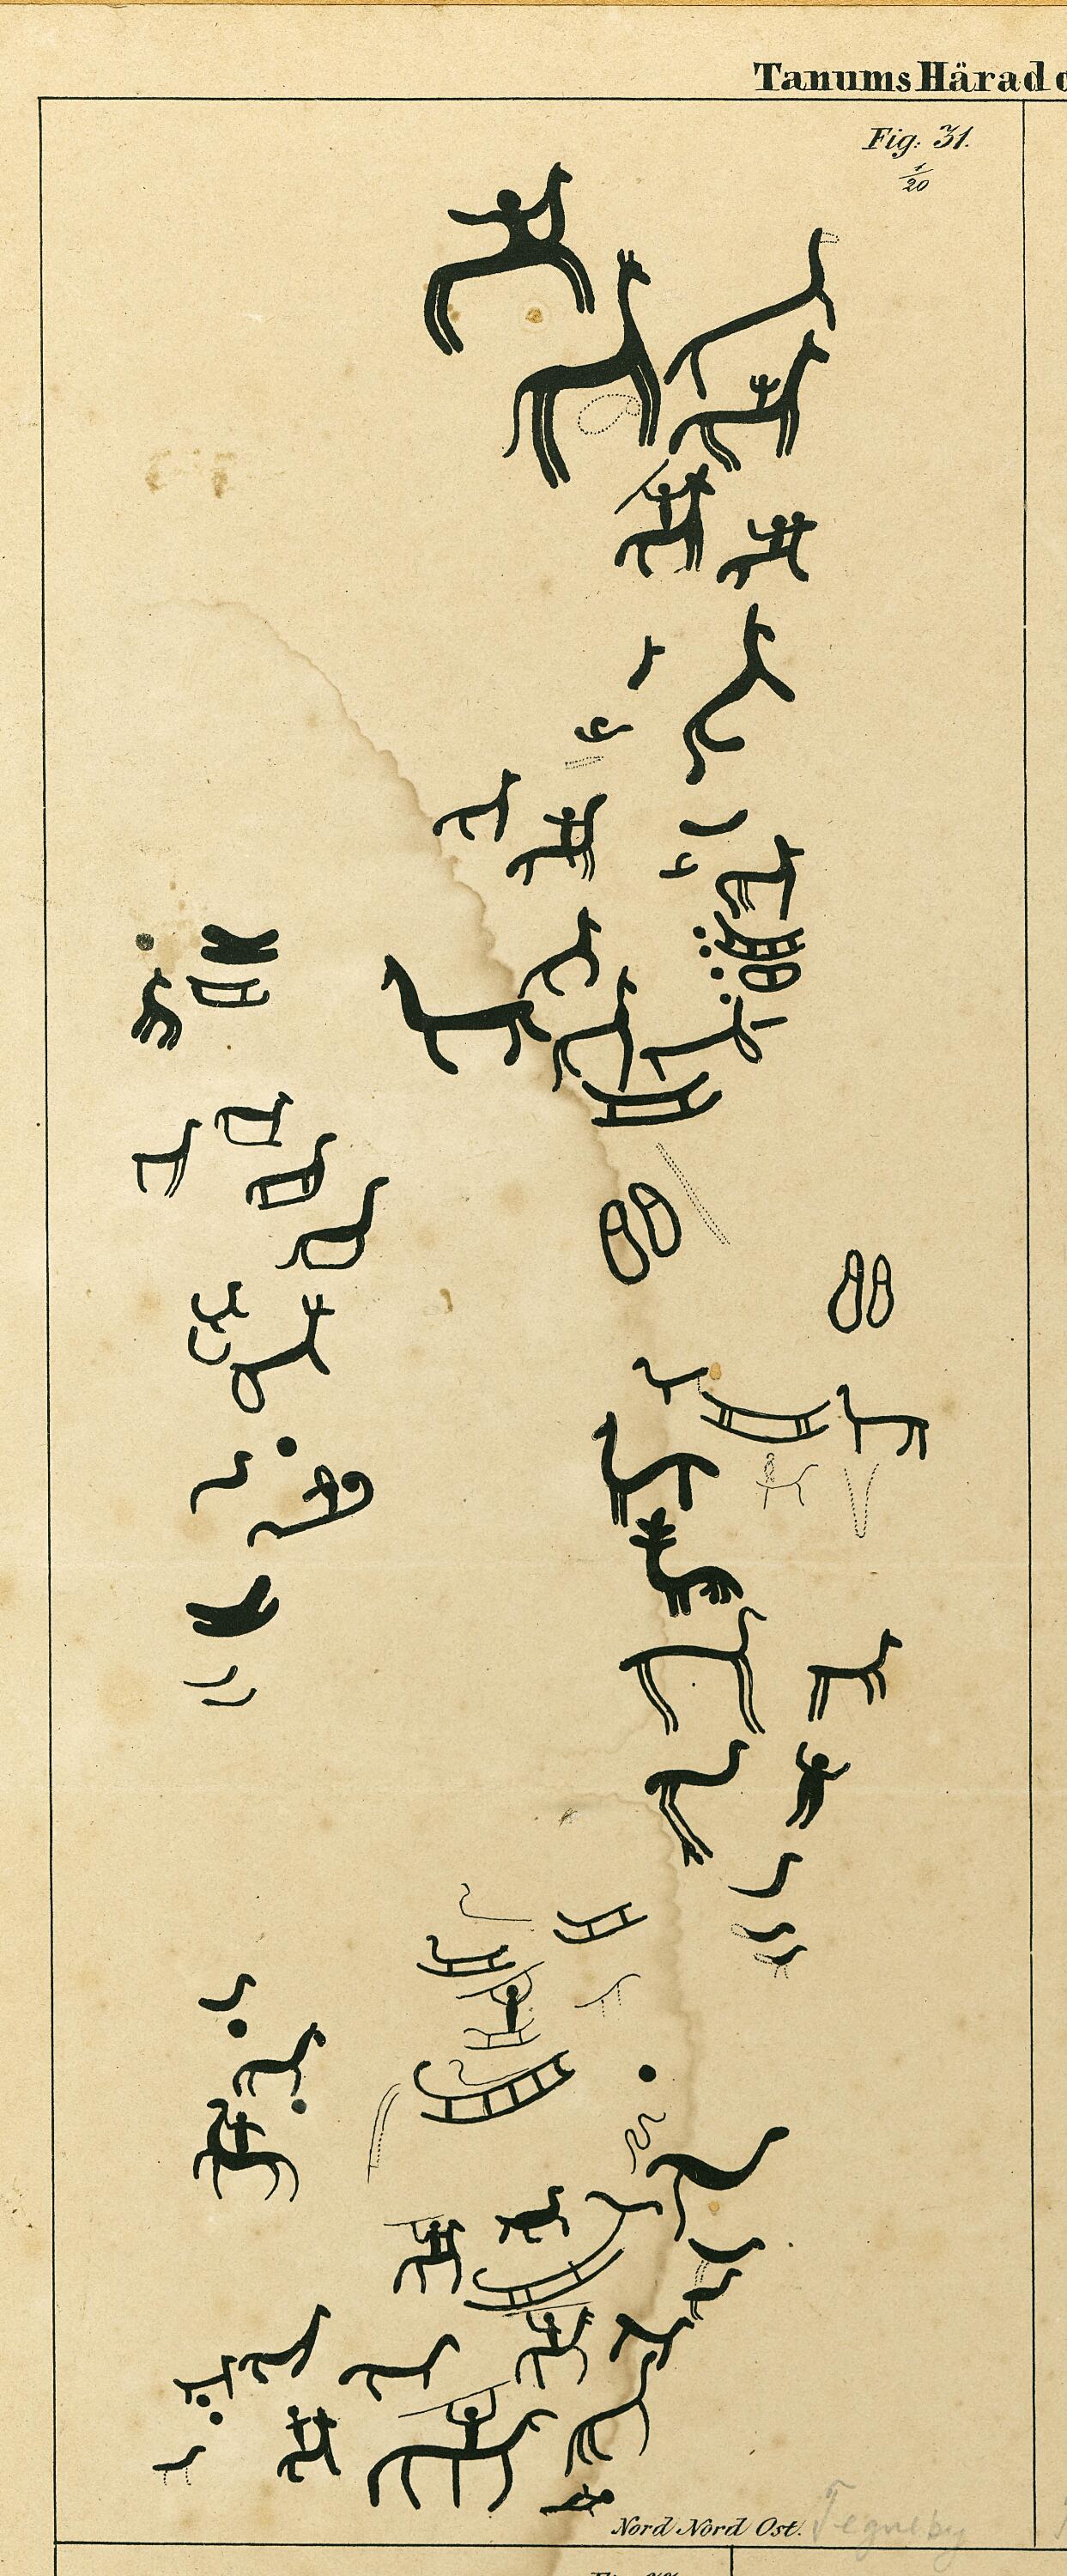 Tanums Härad
Fig. 31.
1/20
Nord Nord Ost. Tegneby